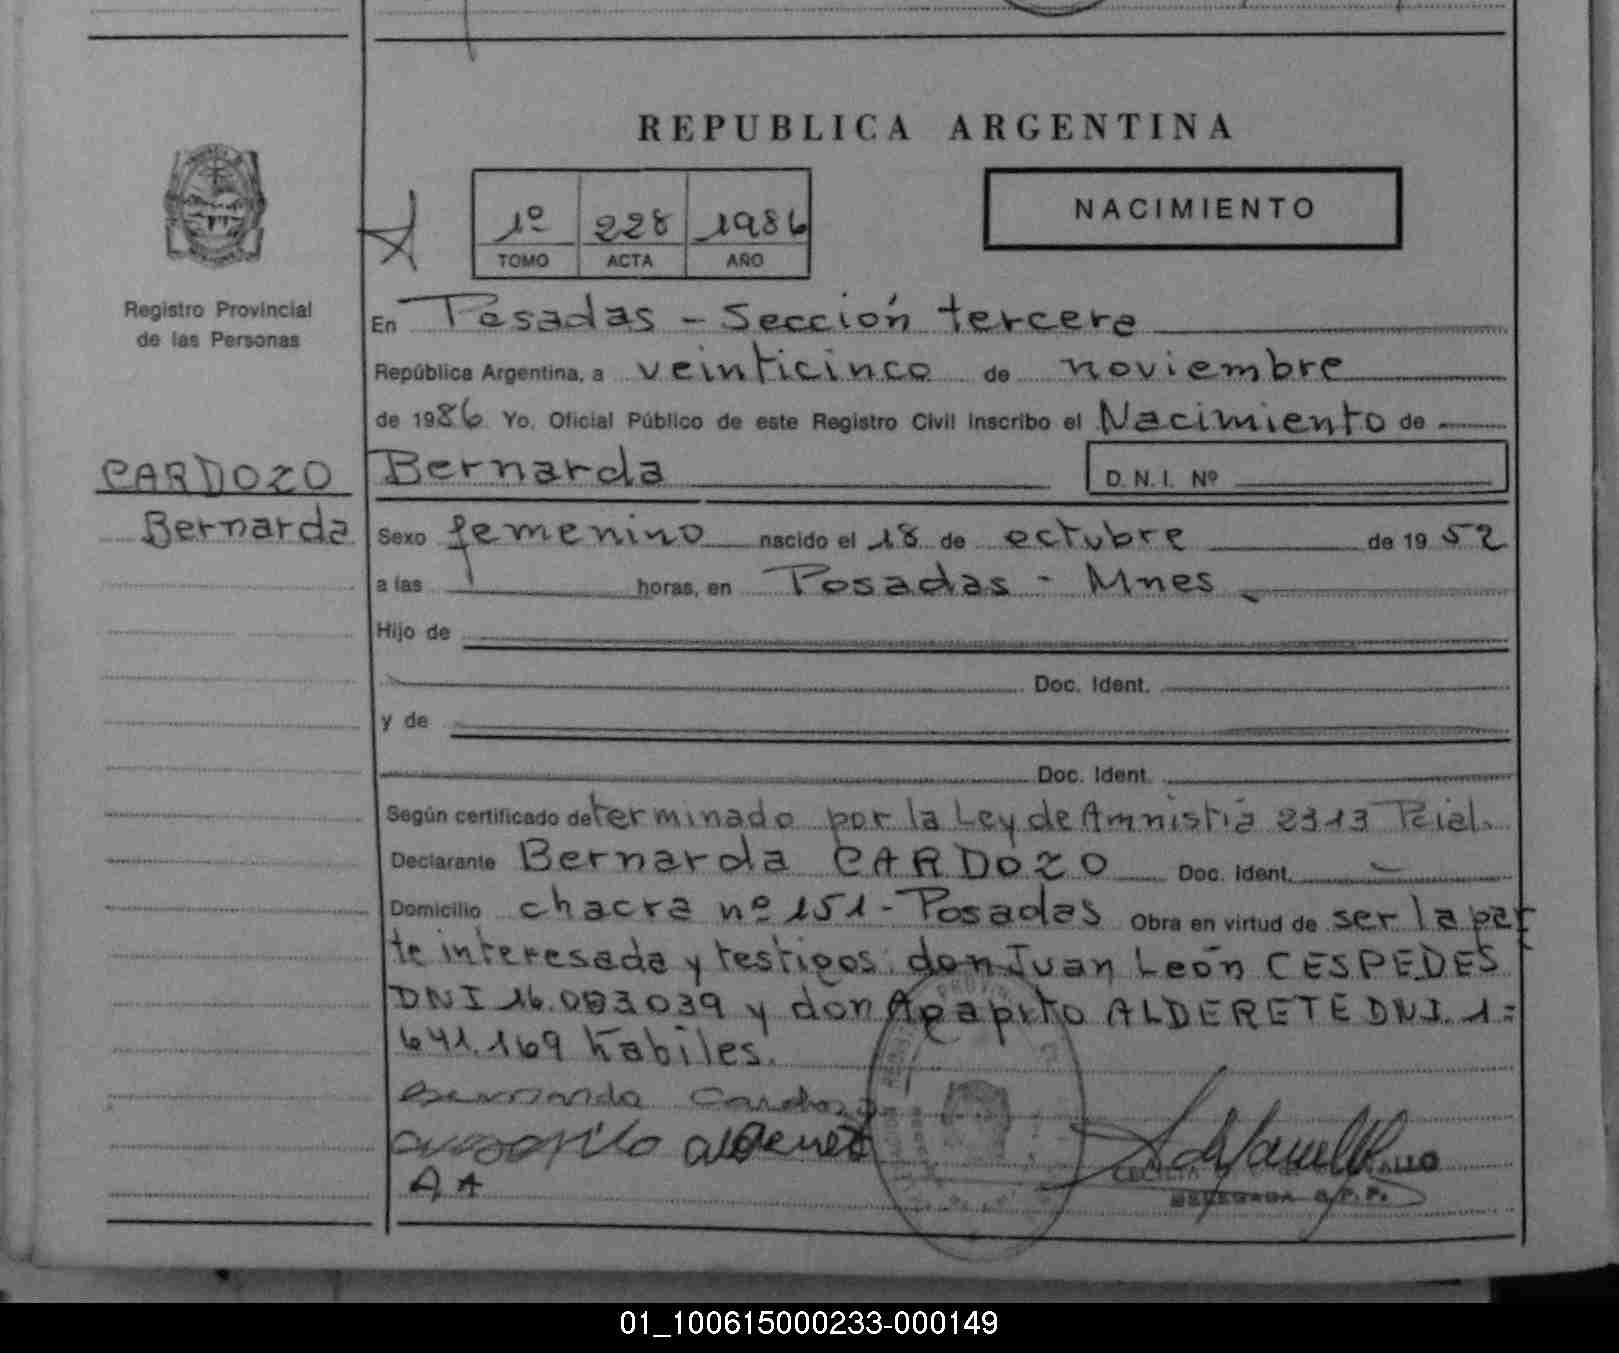 REPUBLICA ARGENTINA
1º 228 1986
TOMO ACTA AÑO
NACIMIENTO
Registro Provincial
de las Personas
CARDOZO
Bernarda
En Posadas - Sección tercera
República Argentina, a veinticinco de noviembre
de 1986 Yo, Oficial Público de este Registro Civil inscribo el Nacimiento de
Bernarda D. N. I. Nº
Sexo femenino nacido el 18 de octubre de 1952
a las horas, en Posadas - Mnes
Hijo de
Doc. Ident.
y de
Doc. Ident.
Según certificado determinado por la Ley de Amnistia 2313 Pcial.
Declarante Bernarda CARDOZO Doc. Ident.
Domicilio chacra nº 151 - Posadas Obra en virtud de ser la par
te interesada y testigos: don Juan León CESPEDES
DNI 16.083039 y don Agapito ALDERETE DNI. 1=
641.169 habiles.
Bernarda Cardozo
A A
CECILIA
DELEGADA R.P.P.
01_100615000233-000149